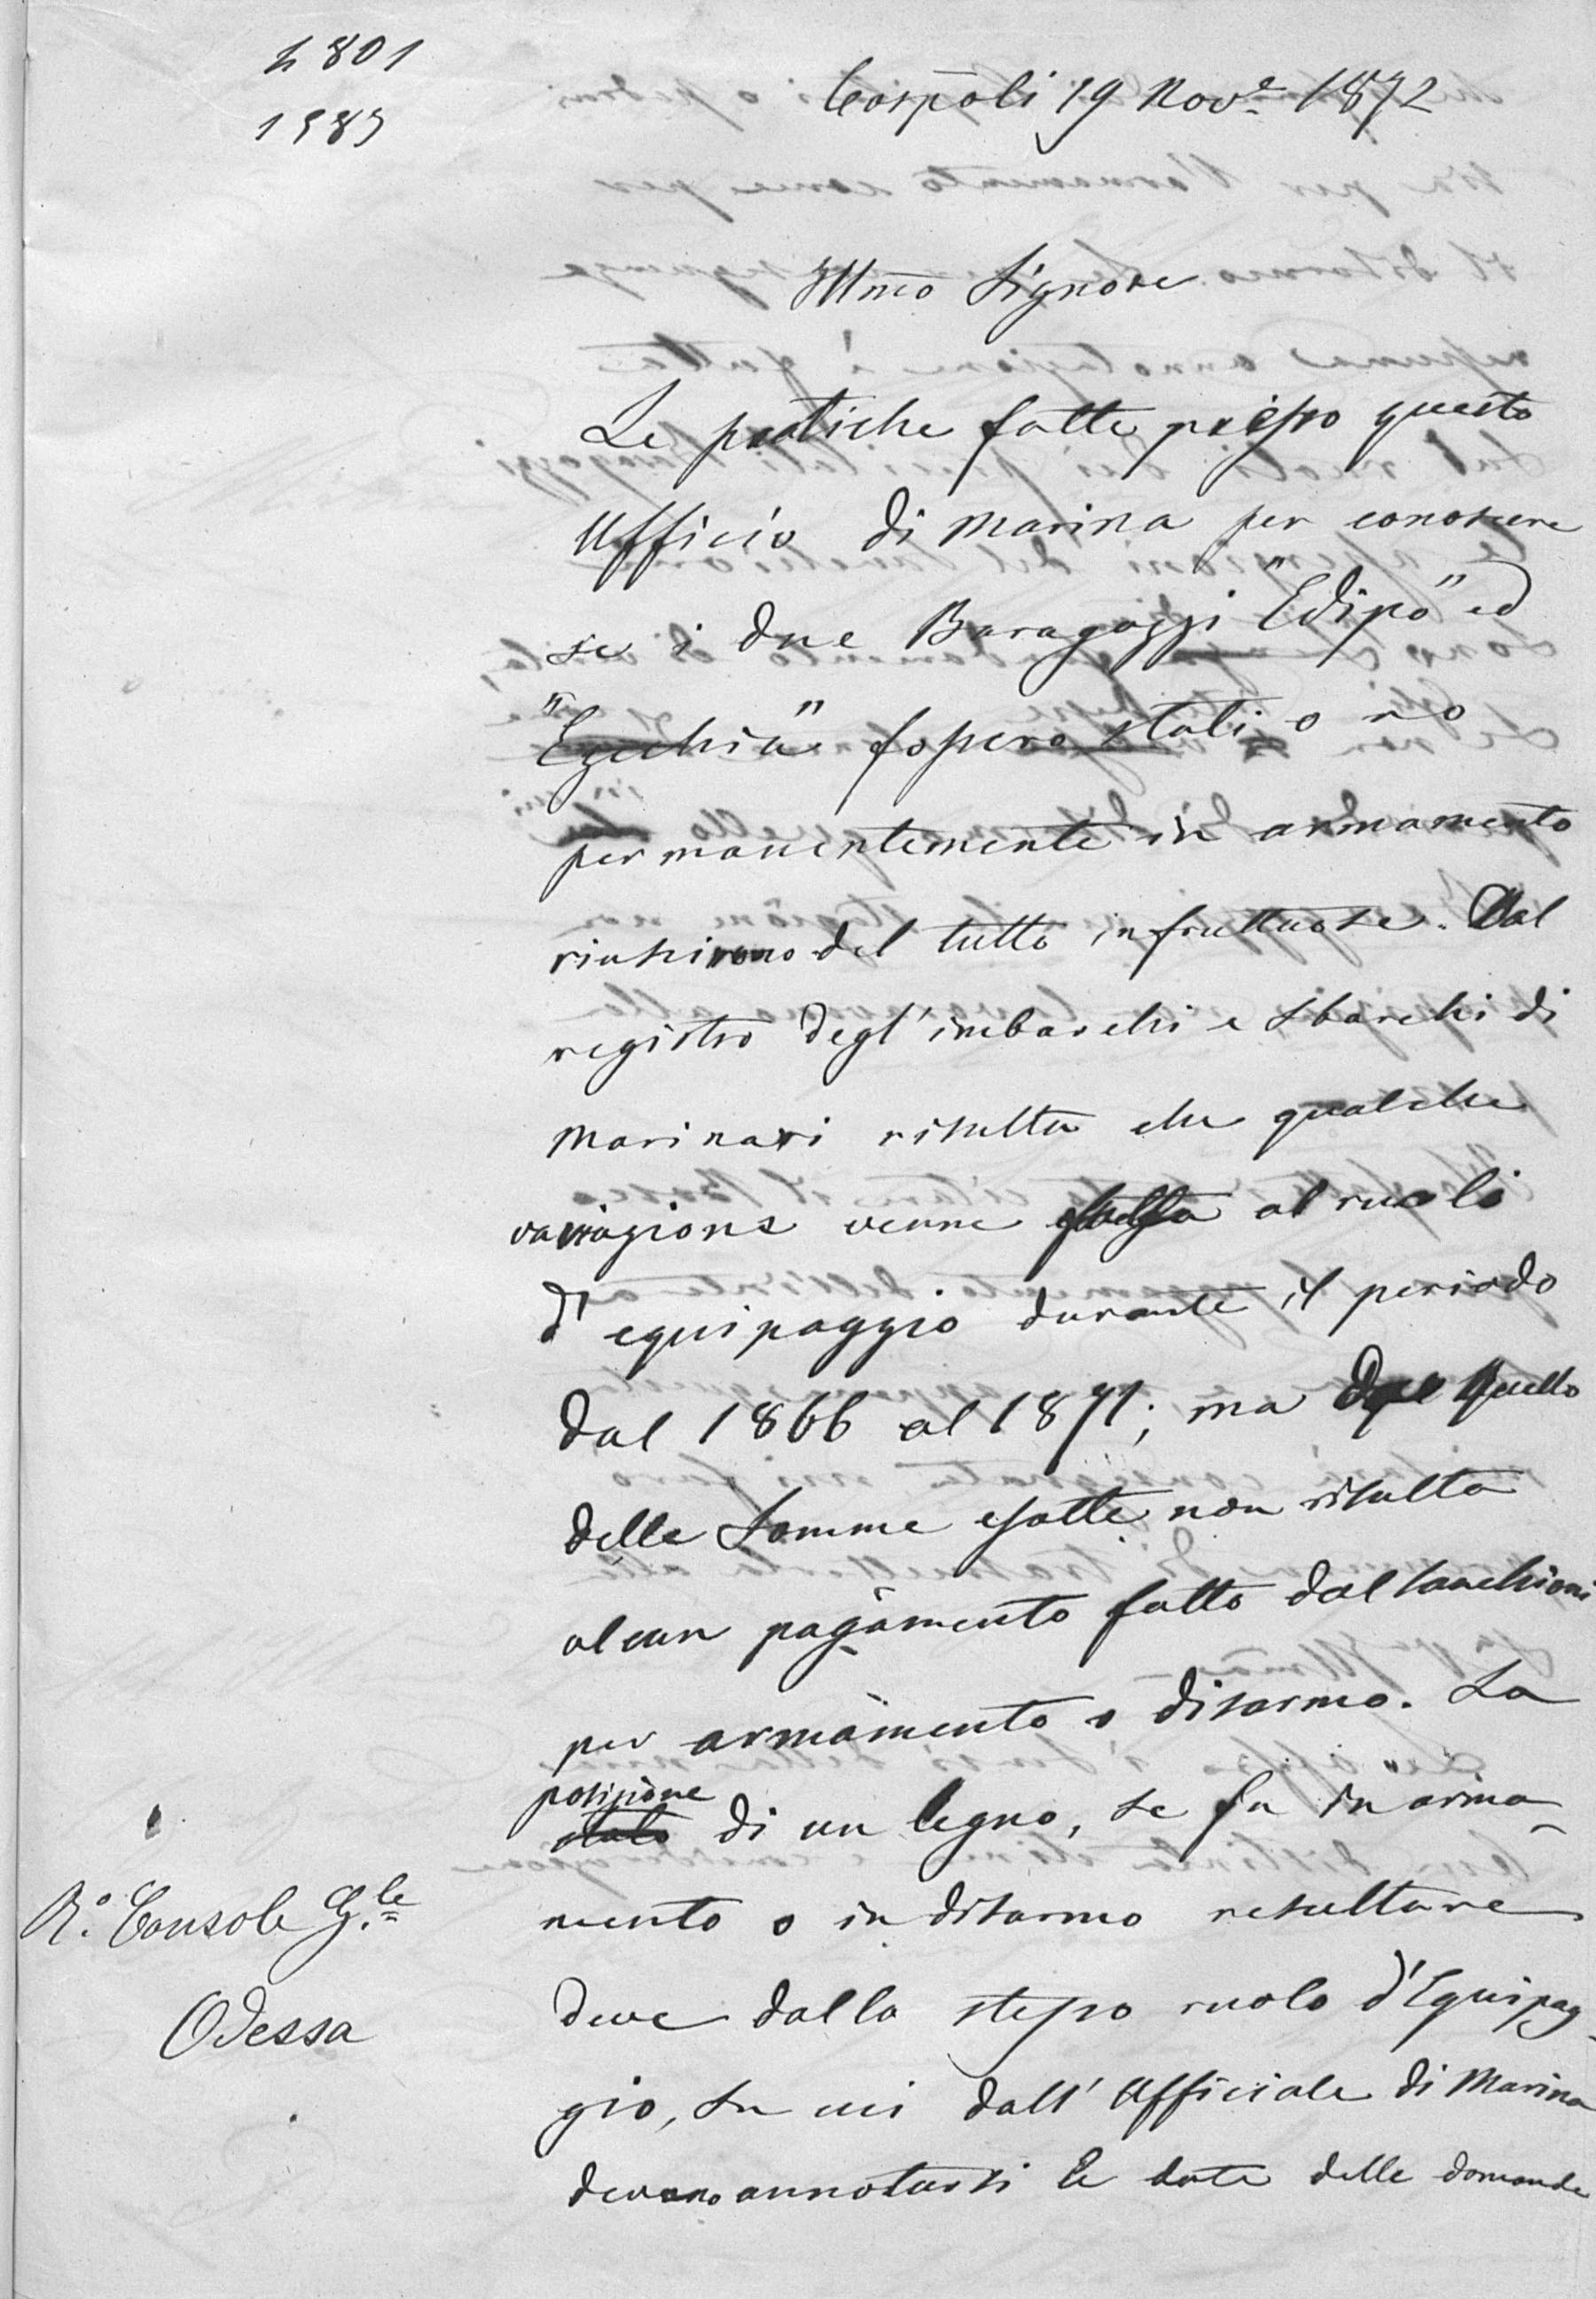 1801
1989
Cospoli 19 Nov.e 1872
Illmo Signore
Le pratiche fatte presso questo
Ufficio di Marina per conoscere
se i due Baragozzi "Edipo" ed
"Ezechia" fossero stati o no
permanentemente in armamento
riuscirono del tutto infruttuose. Dal
registro degl'imbarchi e sbarchi di
Marinari risulta che qualche
variazione venne al ruolo
d'equipaggio durante il periodo
dal 1866 al 1871; ma quello
delle Somme esatte non risulta
alcun pagamento fatto dal
per armamento o disarmo. La
posizione
stato di un legno, se fu in arma-
mento o in disarmo resultare
deve dallo stesso ruolo d'Equipag-
gio, su cui dall'Ufficiale di Marina
devono annotarsi le date delle domande
R.o Console G.le
Odessa